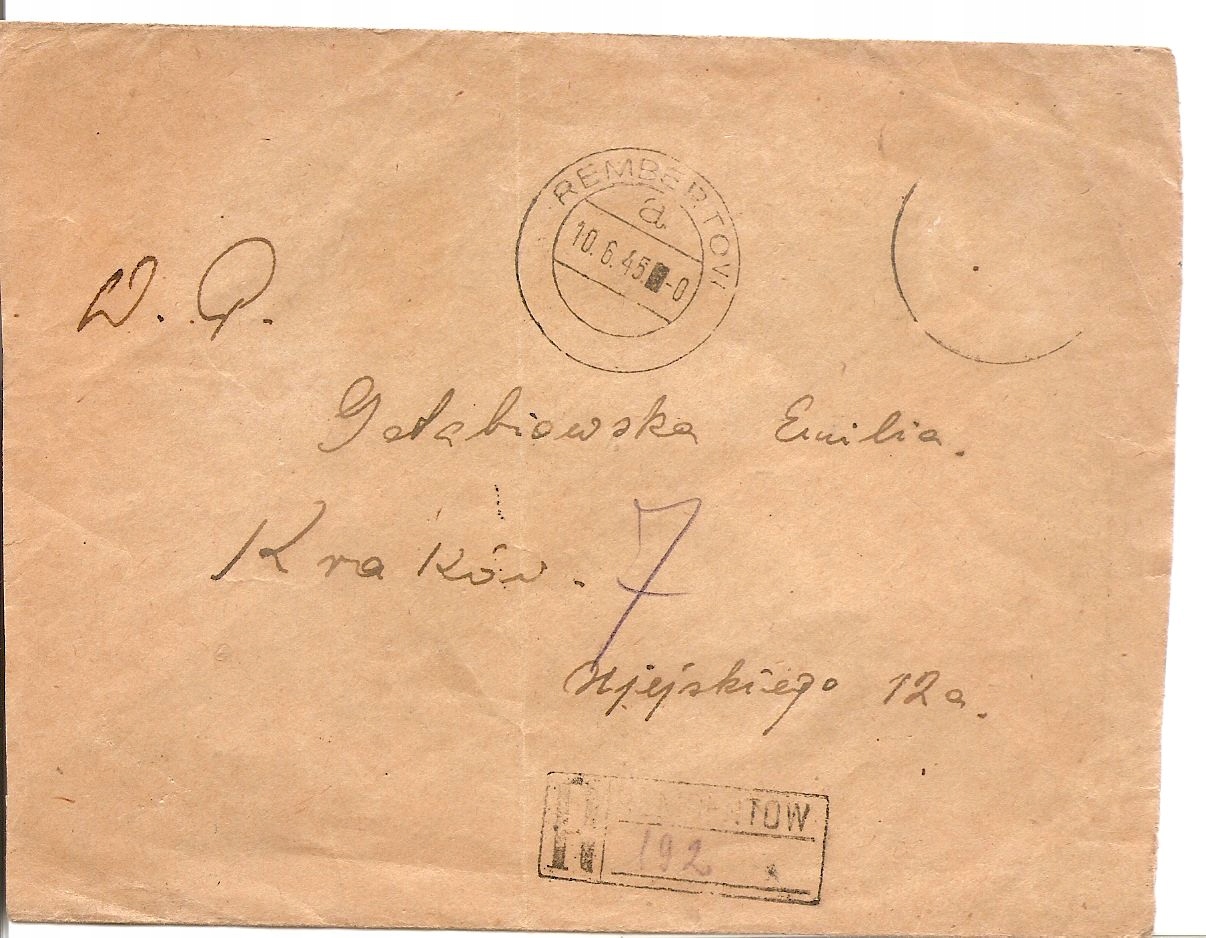 REMBERTOW
a
10.6.45 -0
W. P.
Gołąbiowska Emilia.
Kraków. 7
Ujejskiego 12a.
R REMBERTOW
192